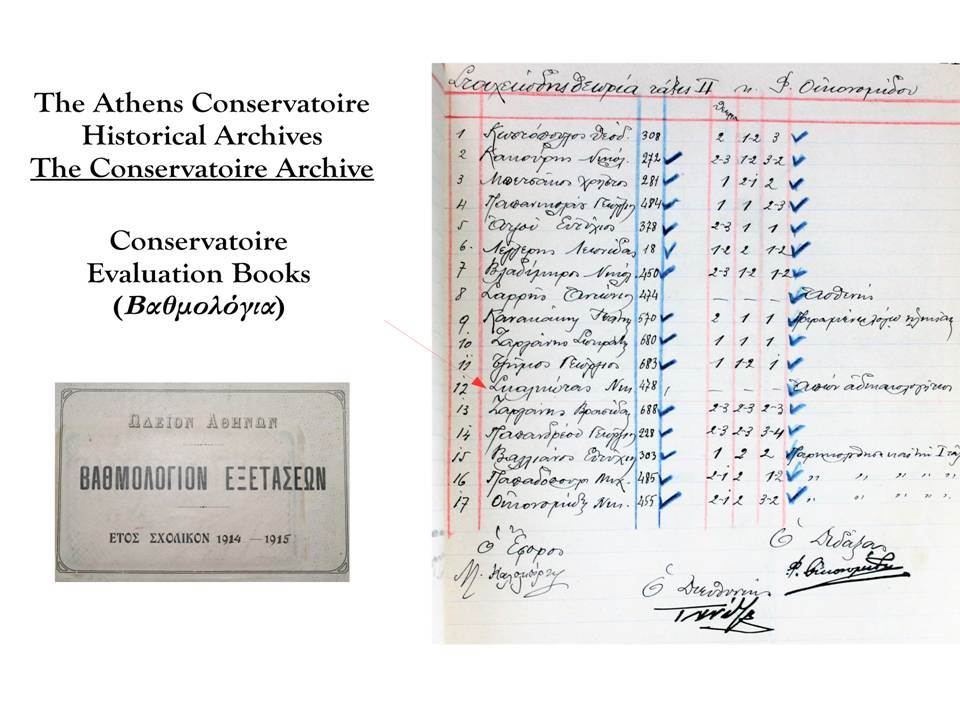 The Athens Conservatoire
Historical Archives
The Conservatoire Archive
Conservatoire
Evaluation Books
(Βαθμολόγια)
ΩΔΕΙΟΝ ΑΘΗΝΩΝ
ΒΑΘΜΟΛΟΓΙΟΝ ΕΞΕΤΑΣΕΩΝ
ΕΤΟΣ ΣΧΟΛΙΚΟΝ 1914 - 1915
Στοιχειώδης θεωρία τάξις II κ. Φ. Οικονομίδου
1 Κωστόπουλος Θεόδ. 308 2 1-2 3
2 Νικόλ. 272 2-3 1-2 3-2
3 Χρήστος 281 1 2-1 2
4 Παπανικολάου Γεώργιος 484 1 1 2-3
5 Ευτύχιος 378 2-3 1 1
6 Λεωνίδας 18 1-2 2 1-2
7 Βλαδίμηρος Νικόλ. 450 2-3 1-2 1-2
8 Σαρρής Αντώνιος 474 — — — Ασθενής
9 Κανακάκης 570 2 1 1
10 680 1 1 1
11 Γεώργιος 683 1 1-2 1
12 Σκαλκώτας Νικ. 478 — — — Απών αδικαιολογήτως
13 688 2-3 2-3 2-3
14 Παπανδρέου Γεώργιος 228 2-3 2-3 3-4
15 Βαλλιάνος 303 1 2 2
16 Παπαδόπουλος Μιχ. 485 2-1 2 1-2 " " " " "
17 Οικονομίδης Νικ. 455 2-1 2 3-2 " " " " "
Ο Έφορος
Ο Διδάξας
Φ. Οικονομίδης
Ο Διευθυντής